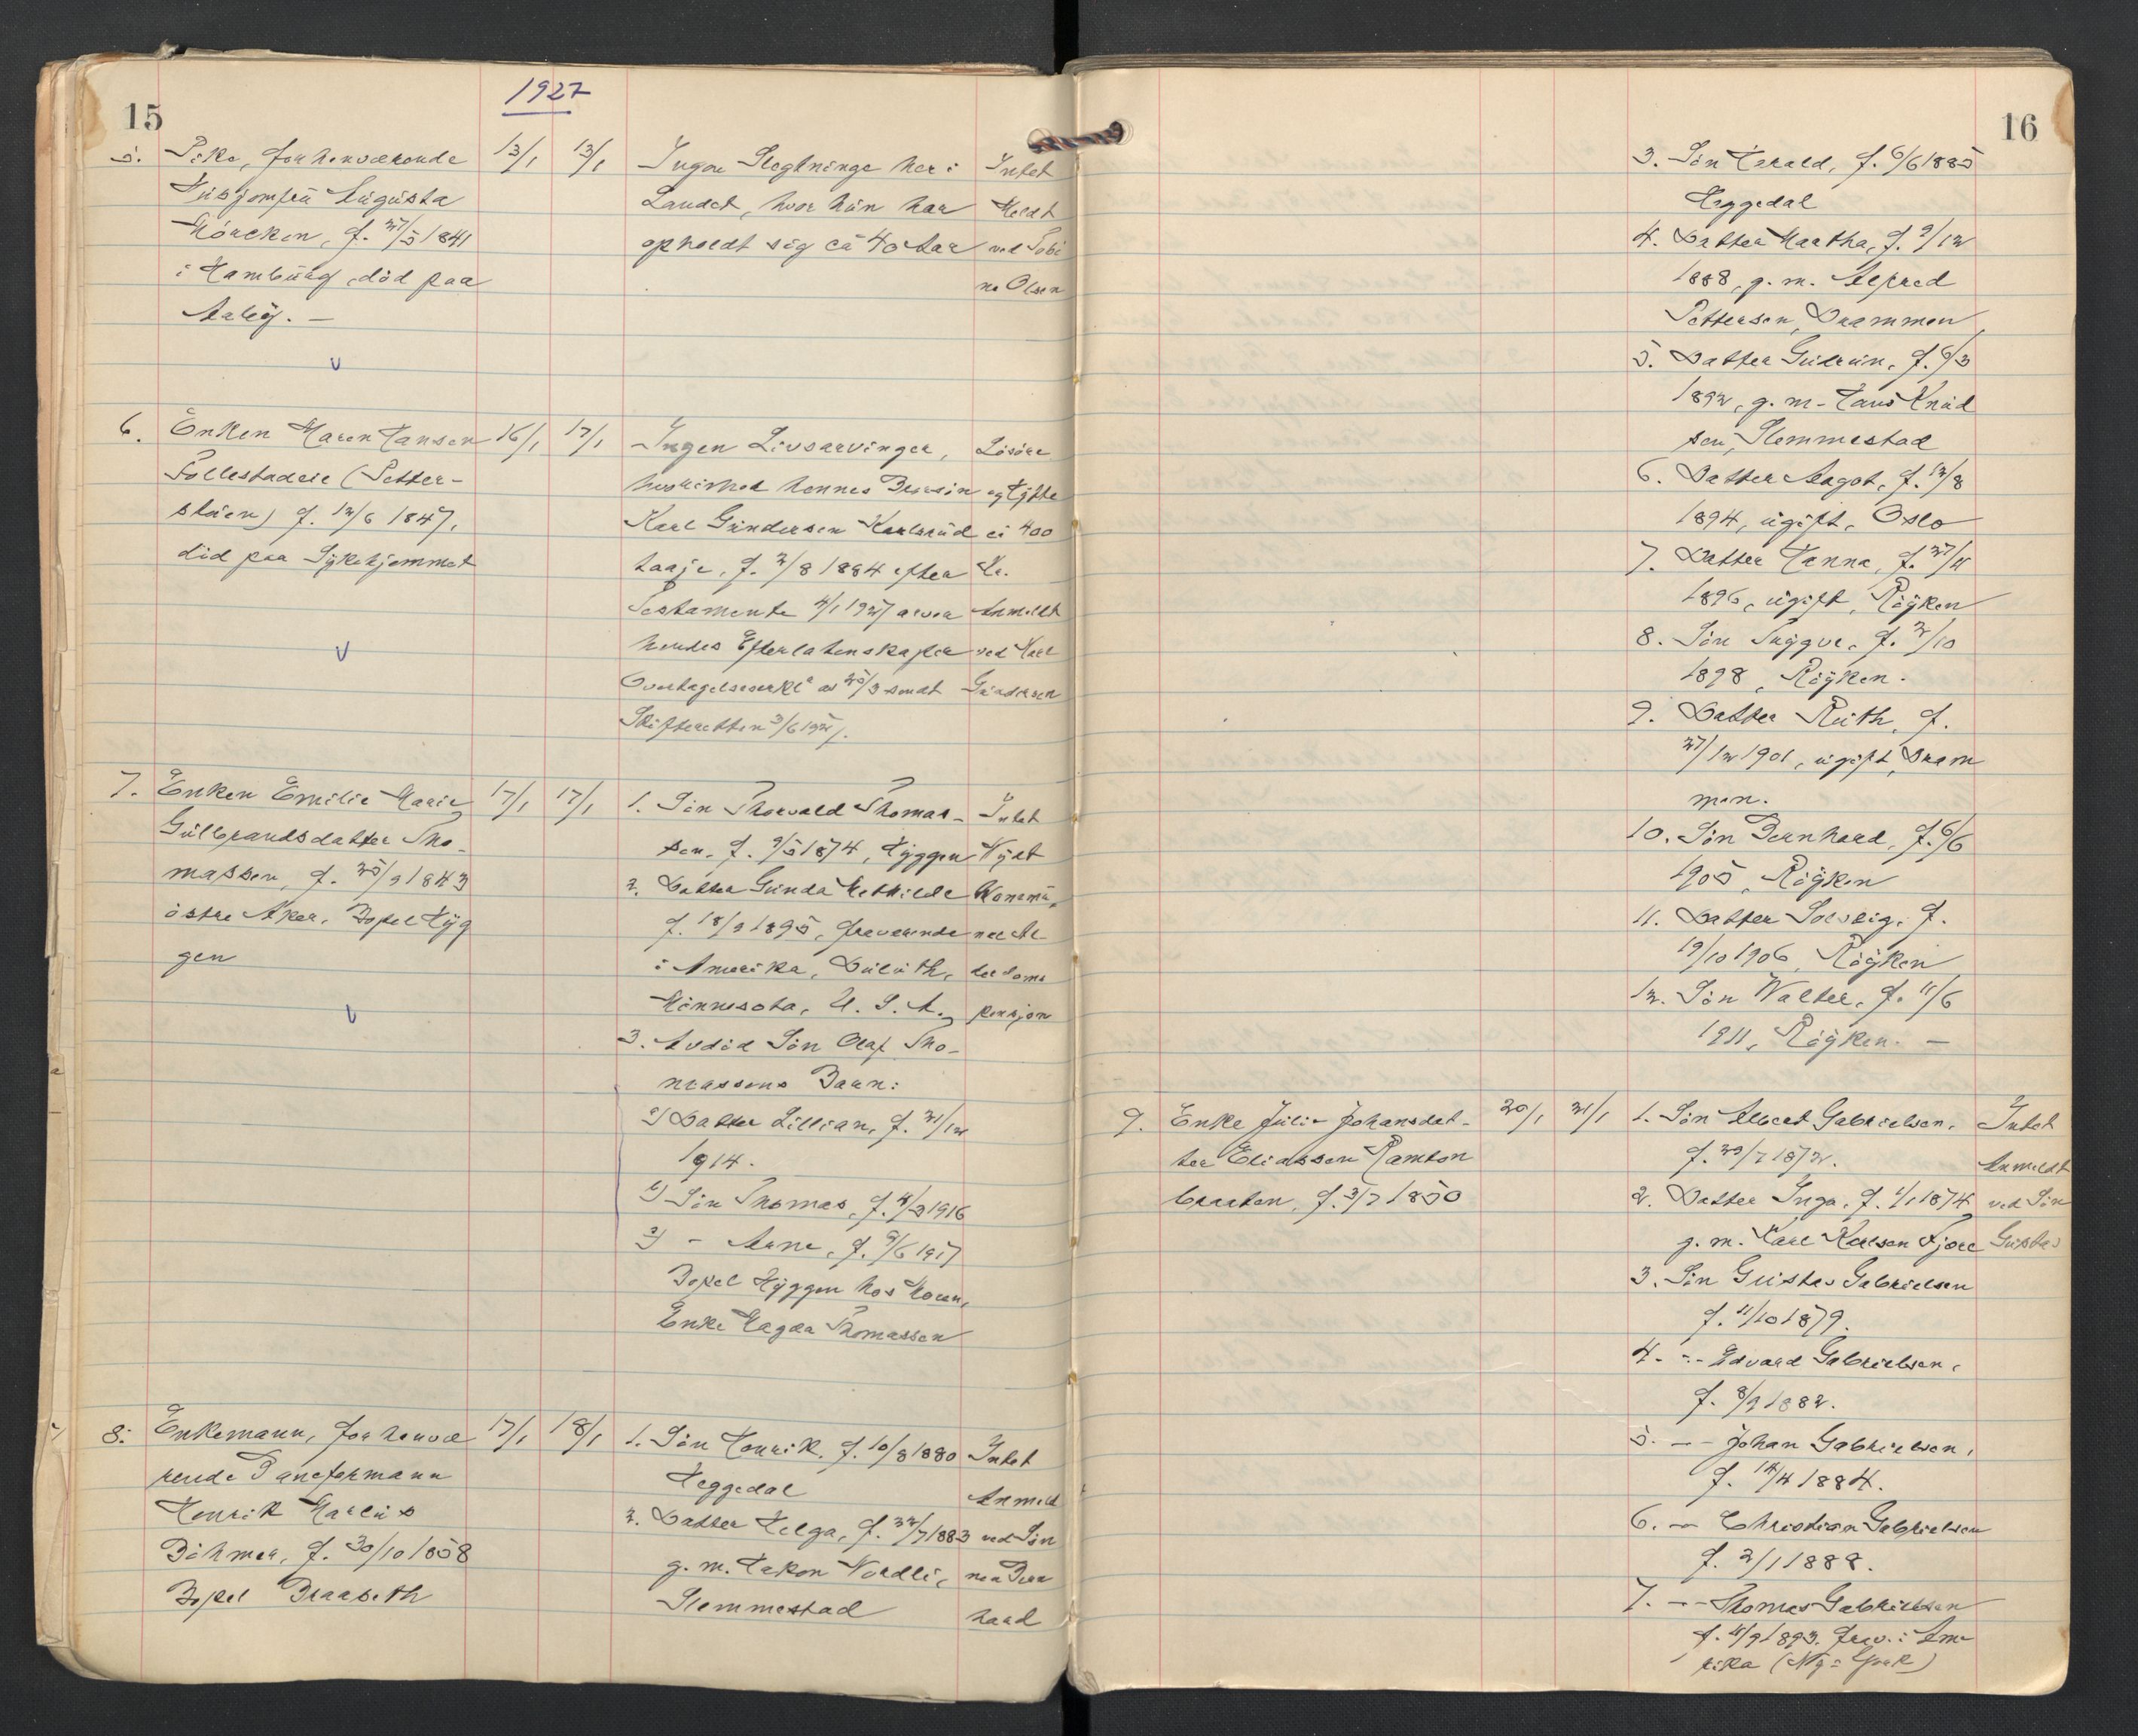 1927
15
5. Pike, forhenværende 13/1 13/1 Ingen Slegtninge her i Intet
Husjomfru Augusta Landet, hvor hun har Meldt
Mörcken, f. 27/5 1841 opholdt sig ca 40 Aar ved Tobi
i Hamburg, död paa ne Olsen
V
6. Enken Maren Hansen 16/1 17/1 Ingen Livsarvinger, Lösöre
Follestadeie (Petter- hvorimod hennes Brorsön og Hytte
sløien) f. 12/6 1847, Karl Gundersen Karlsrud ei 400
död paa Sykehjemmet Haaje, f. 2/8 1884 efter Kr.
Testamente 4/1 1927 arver Anmeldt
hendes Efterlatenskaper ved Karl
V
Overtagelseserkl. av 25/3 sendt Gundersen
Skifteretten 3/6 1927.
7. Enken Emilie Marie 17/1 17/1 1. Sön Thorvald Thomas- Intet
Gulbrandsdatter Tho- sen, f. 9/5 1874, Hyggen Nydt
massen, f. 25/9 1843 2. Datter Gunda Mathilde Kommu-
östre Aker. Bopel Hyg f. 18/9 1895, fraværende nal Al-
gen i Amerika, Duluth, derdoms
V
Minnesota, U. S. A. pensjon
3. Avdöd Sön Olaf Tho-
massens Barn:
a) Datter Lillian, f. 21/12
1914.
b) Sön Thomas, f. 4/3 1916
c) - Arne, f. 9/6 1917
Bopel Hyggen hos Moren,
Enke Magda Thomassen
8. Enkemann, forhenvæ 17/1 18/1 1. Sön Henrik, f. 10/8 1880 Intet
rende Heggedal Anmeld
Henrik Marius 2. Datter Helga, f. 22/7 1883 ved Sön
Böhmer, f. 30/10 1858 g. m. Hakon Nordli, nen Bern
Bopel Braaseth Slemmestad hard
16
3. Sön Harald, f. 6/6 1885
Heggedal
4. Datter Martha, f. 9/12
1888, g. m. Alfred
Pettersen, Drammen
5. Datter Gudrun, f. 6/3
1892, g. m. Hans Knud
sen, Slemmestad
6. Datter Aagot, f. 12/8
1894, ugift, Oslo
7. Datter Hanna, f. 27/4
1896, ugift, Röyken
8. Sön Trygve, f. 2/10
1898, Röyken.
9. Datter Ruth, f.
27/12 1901, ugift, Dram
men.
10. Sön Bernhard, f. 6/6
1905, Röyken
11. Datter Solveig, f.
19/10 1906, Röyken
12. Sön Walter, f. 11/6
1911, Röyken. —
9. Enke Julie Johansdat- 20/1 21/1 1. Sön Albert Gabrielsen, Intet
ter Eliassen Ramton f. 29/7 1872. Anmeldt
braaten, f. 3/7 1850 2. Datter Inga, f. 1/1 1874 ved Sön
g. m. Karl Karlsen Fjore Gustav
3. Sön Gustav Gabrielsen
f. 11/10 1879.
4. -"- Edvard Gabrielsen,
f. 8/9 1882.
5. -- Johan Gabrielsen,
f. 14/4 1884.
6. -- Christian Gabrielsen
f. 2/1 1888.
7. -- Thomas Gabrielsen
f. 4/9 1893. frav. i Ame
rika (Ny-York)